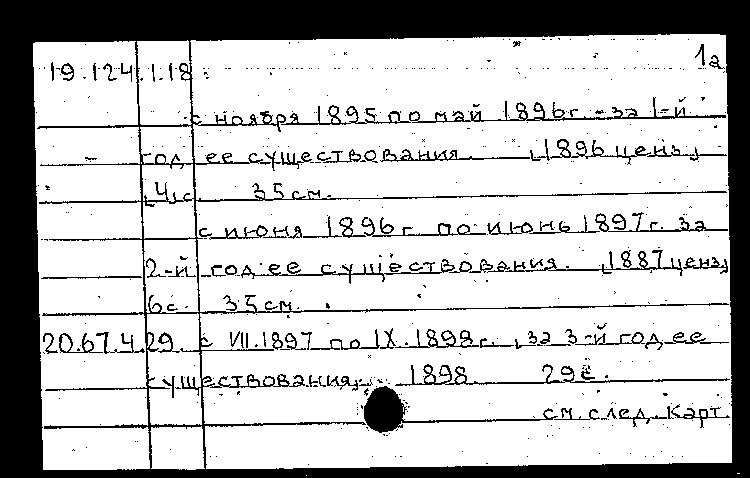 1а
19.124.1.18
с ноября 1895 по май 1896г. - за 1-й
год ее существования. [1896 ценз.]
[4] с. 35 см.
с июня 1896г по июнь 1897г. за
2-й год ее существования. [1887 ценз]
6с. 35 см.
20.67.4.29. с VII.1897 по IX.1898г., за 3-й год ее
существования. 1898. 29с.
см. след. карт.